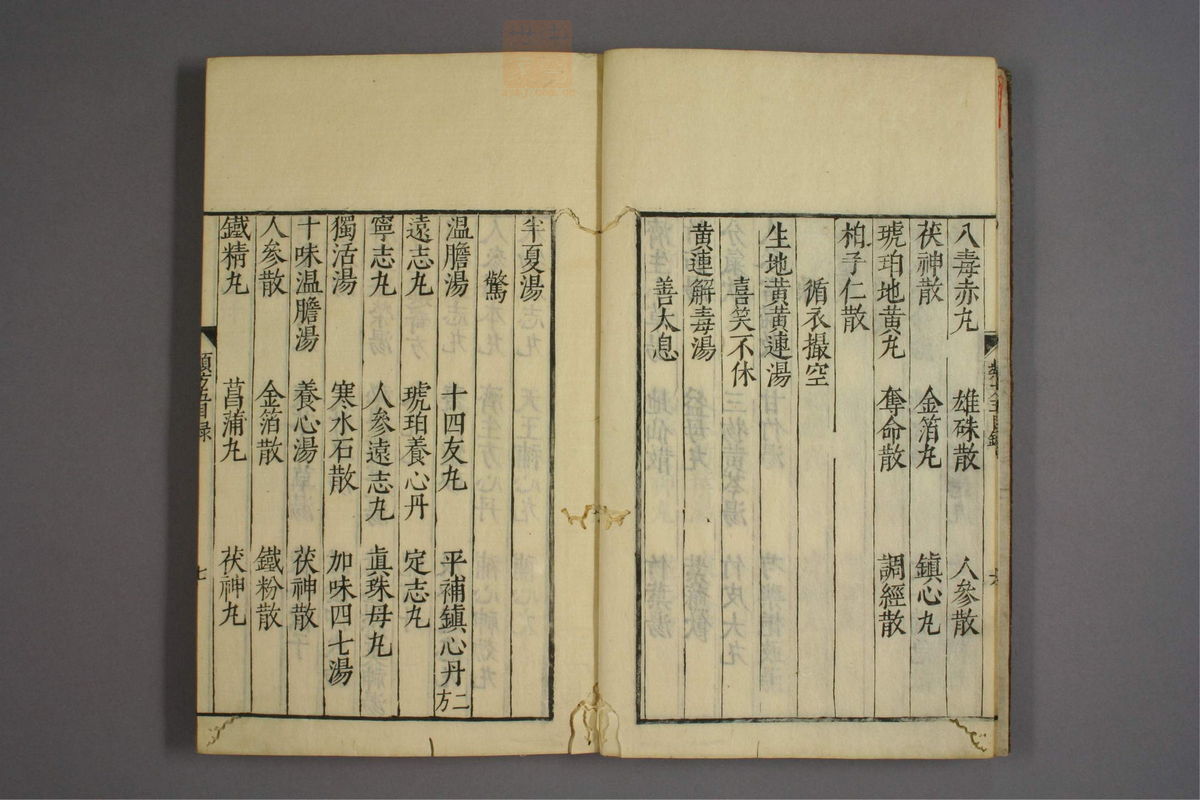 八毒赤丸　雄硃散　人參散
茯神散　金箔丸　鎮心丸
琥珀地黃丸　奪命散　調經散
柏子仁散
循衣撮空
生地黃黃連湯
喜笑不休
黃連解毒湯
善太息
半夏湯
驚
温膽湯　十四友丸　平補鎮心丹二方
遠志丸　琥珀養心丹　定志丸
寧志丸　人參遠志丸　真珠母丸
獨活湯　寒水石散　加味四七湯
十味温膽湯　養心湯　茯神散
人參散　金箔散　鐵粉散
鐵精丸　菖蒲丸　茯神丸
類方五目録
七